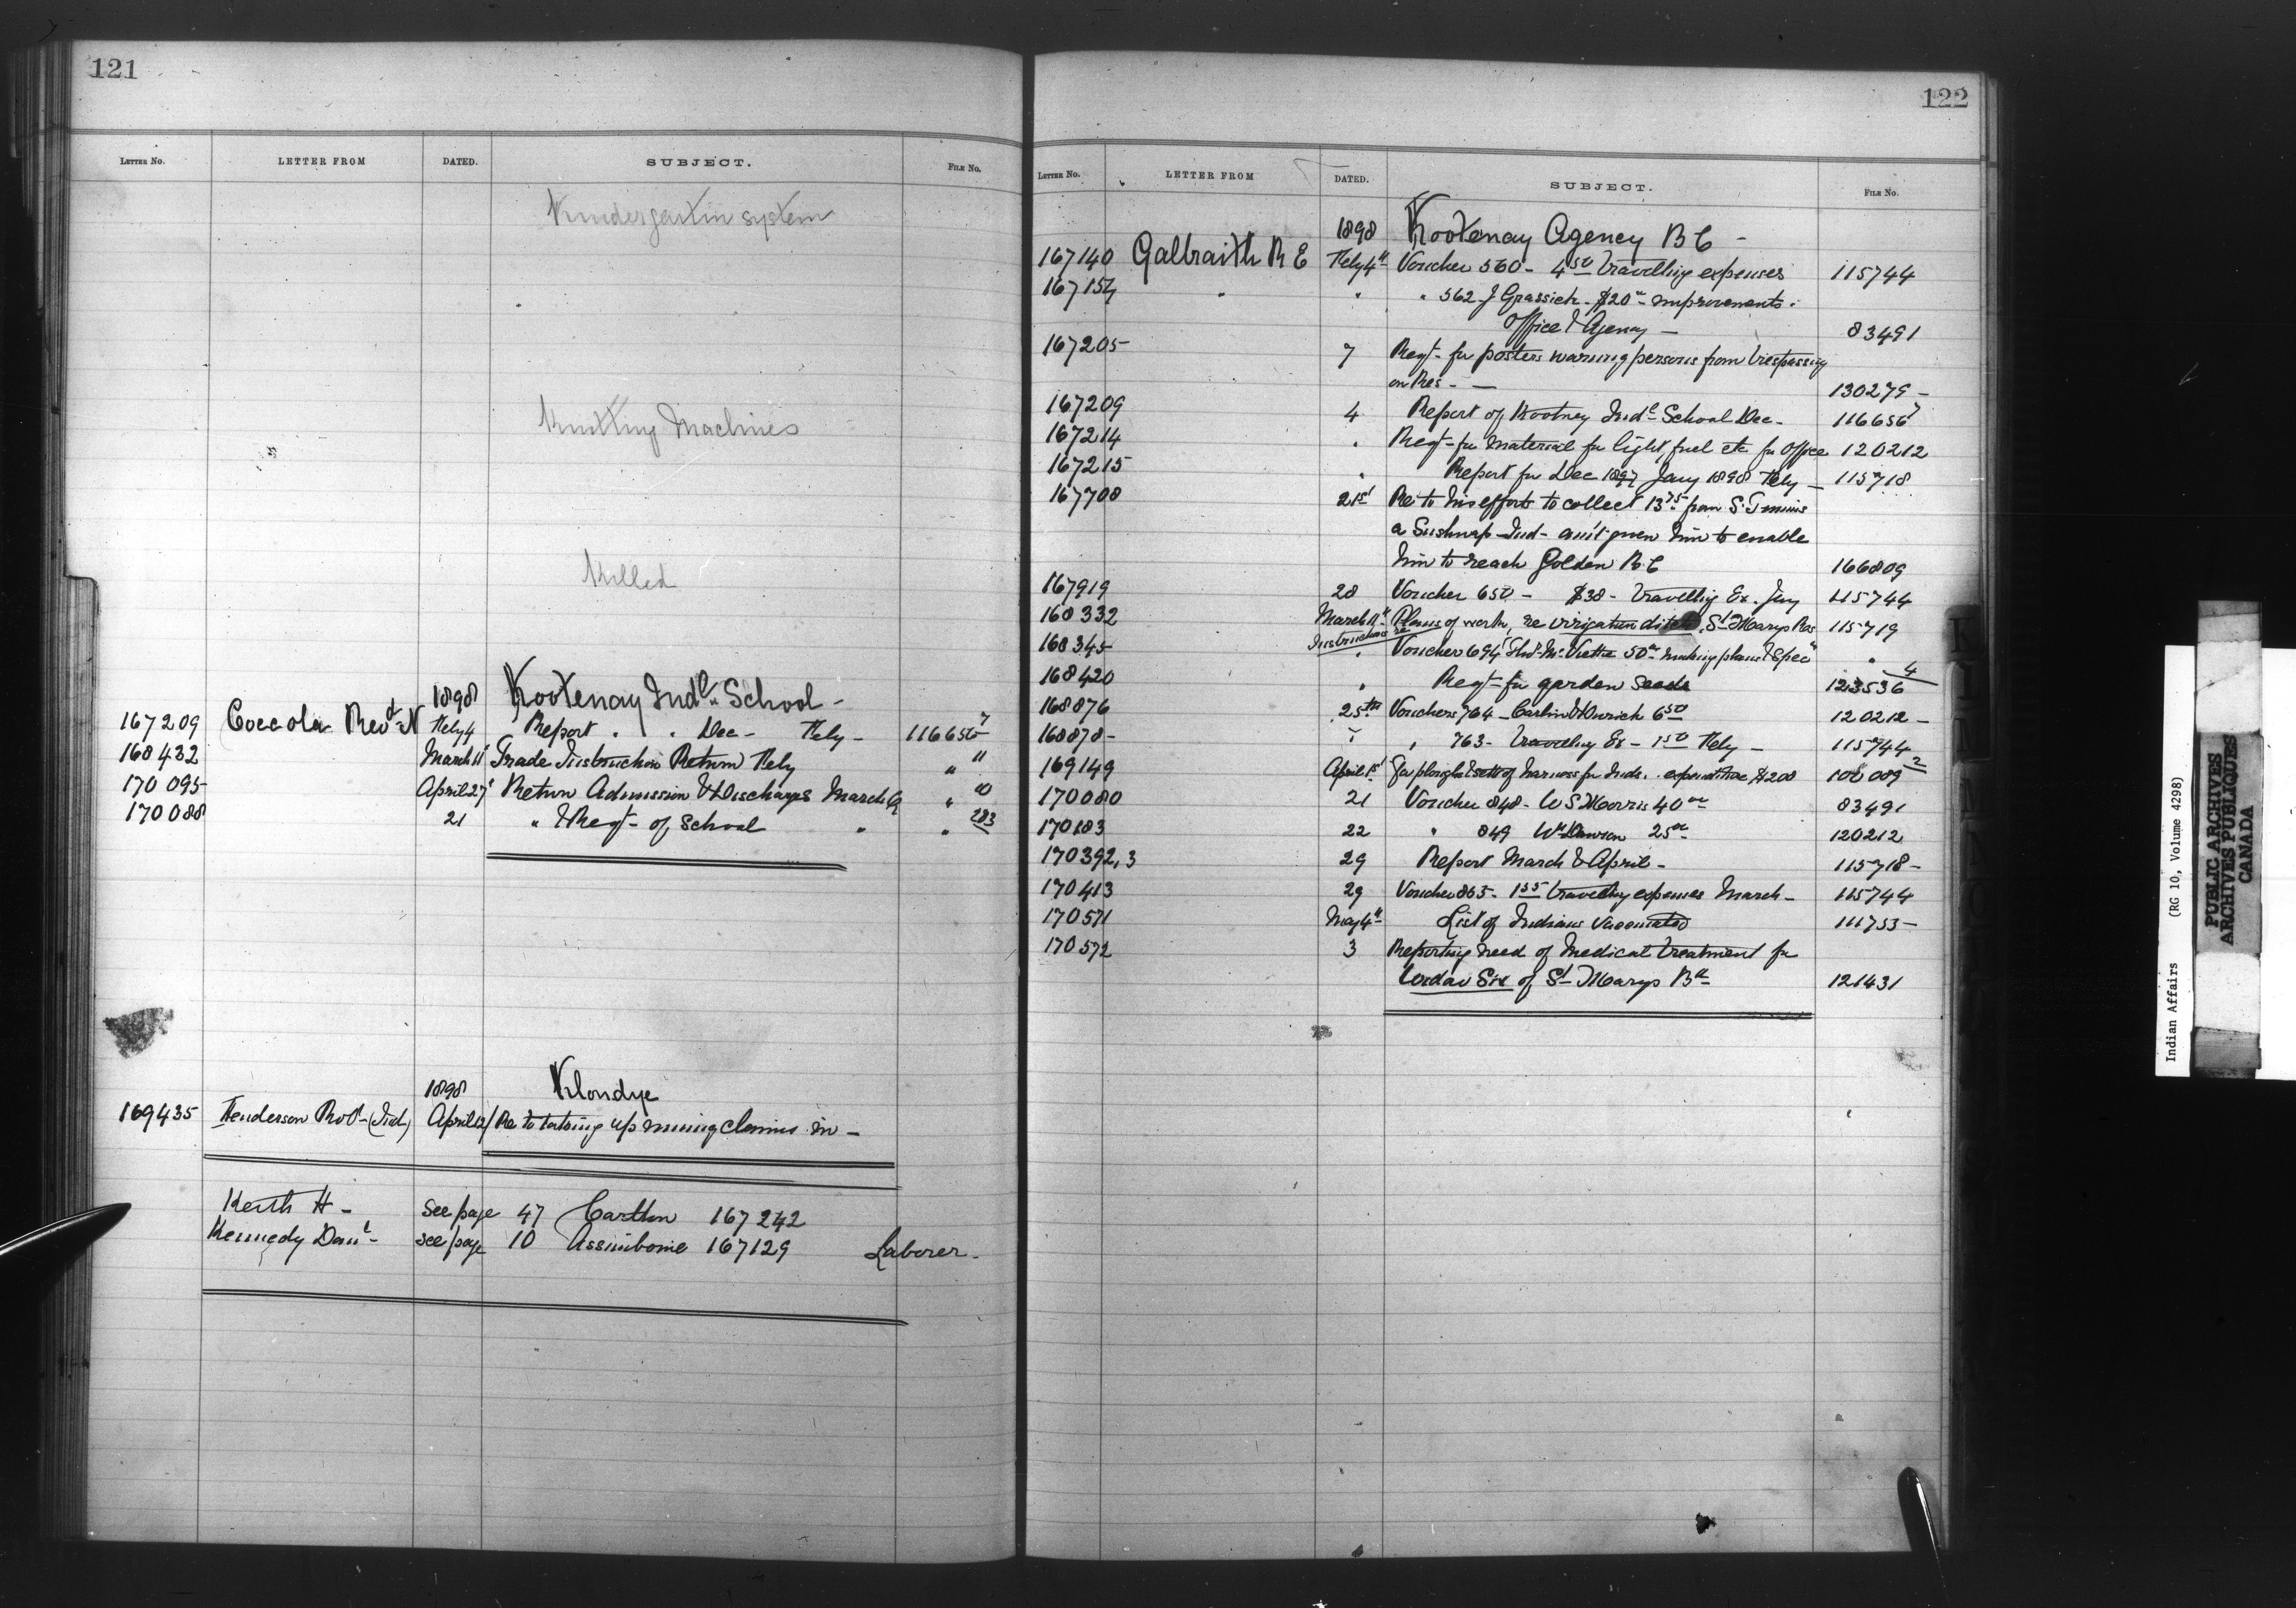 121
LETTER No. LETTER FROM DATED. SUBJECT. FILE No.
Kindergartin system
Knitting Machines
Killed
1898 Kootenay Indl. School -
167209 Coccola Revd N Feby 4 Report " " Dec - Feby - 116656 7
168432 March 11 Trade Instruction Return Feby " 11
170095 April 27 Return Admission & Discharges March " 10
170088 21 " & Reqt - of School " " 283
1898 Klondye
169435 Henderson Robt - (Ind) April 12/ Re to taking up mining claims in -
Keith H - see page 47 Carlton 167242
Kennedy Danl - see page 10 Assiniboine 167129 Laborer -
122
LETTER No. LETTER FROM DATED. SUBJECT. FILE No.
1898 Kootenay Agency B C -
167140 Galbraith R E Feby 4th Voucher 560 - 4 50 travelling expenses 115744
167154 " " " 562 J Grassick - $20 00 improvements -
Office & Agency - 83491
167205 7 Reqt - for posters warning persons from trespassing
on Res - - 130279 -
167209 4 Report of Kootney Indl School Dec - 116656 7
167214 " Reqt - for material for light, fuel etc for Office 120212
167215 " Report for Dec 1897 Jany 1898 Feby - 115718
167708 21st Re to his efforts to collect 13 75 from S.
a Sushwap - Ind - am't given him to enable
him to reach Golden B.C 166809
167919 28 Voucher 650 - $38 - travelling Ex. Jany 115744
168332 March 11th Plans of work, re irrigation ditch, St Marys Res 115719
Instructions re
168345 " Voucher 694 50 00 making plans & Spec "
168420 " Reqt - for garden seeds 123536 4
168876 25th Vouchers 764 - Carlin & Durick 6 50 120212 -
168878 - " " 763 - travelling Ex - 1 50 Feby - 115744
169149 April 1st For ploughs & setts of harness for Inds. expenditure $208 100089 2
170080 21 Voucher 848 - W S Morris 40 00 83491
170183 22 " 849 Wm Dawson 25 00 120212
170392,3 29 Report March & April - 115718 -
170413 29 Voucher 865 - 1 55 travelling expenses March - 115744
170571 May 4th List of Indians Vaccinated 111753 -
170572 3 Reporting need of medical treatment for
of St Marys Bd 121431
Indian Affairs (RG 10, Volume 4298)
PUBLIC ARCHIVES
ARCHIVES PUBLIQUES
CANADA